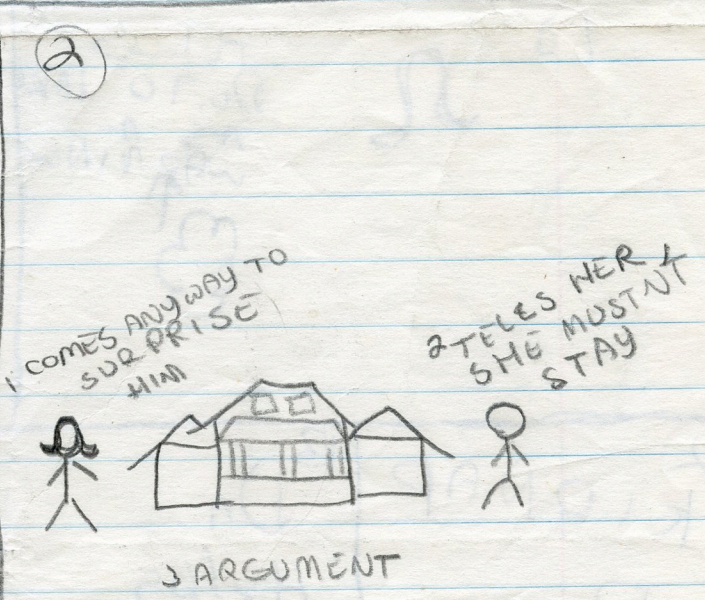 2
1 COMES ANYWAY TO
SURPRISE
HIM
2 TELLS HER &
SHE MUSTNT
STAY
3 ARGUMENT